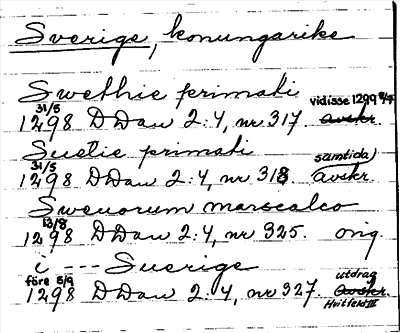 Sverige, konungarike
Swethie primati
31/5 vidisse 1299 8/4
1298 DDan 2:4, nr 317. avskr.
Suetie primati
31/5 samtida)
1298 DDan 2:4, nr 318 avskr.
Swenorum marscalco
13/8
1298 DDan 2:4, nr 325. orig.
i --- Suerige
före 6/9 utdrag
1298 DDan 2:4, nr 327. avskr.
Hvitfeld III